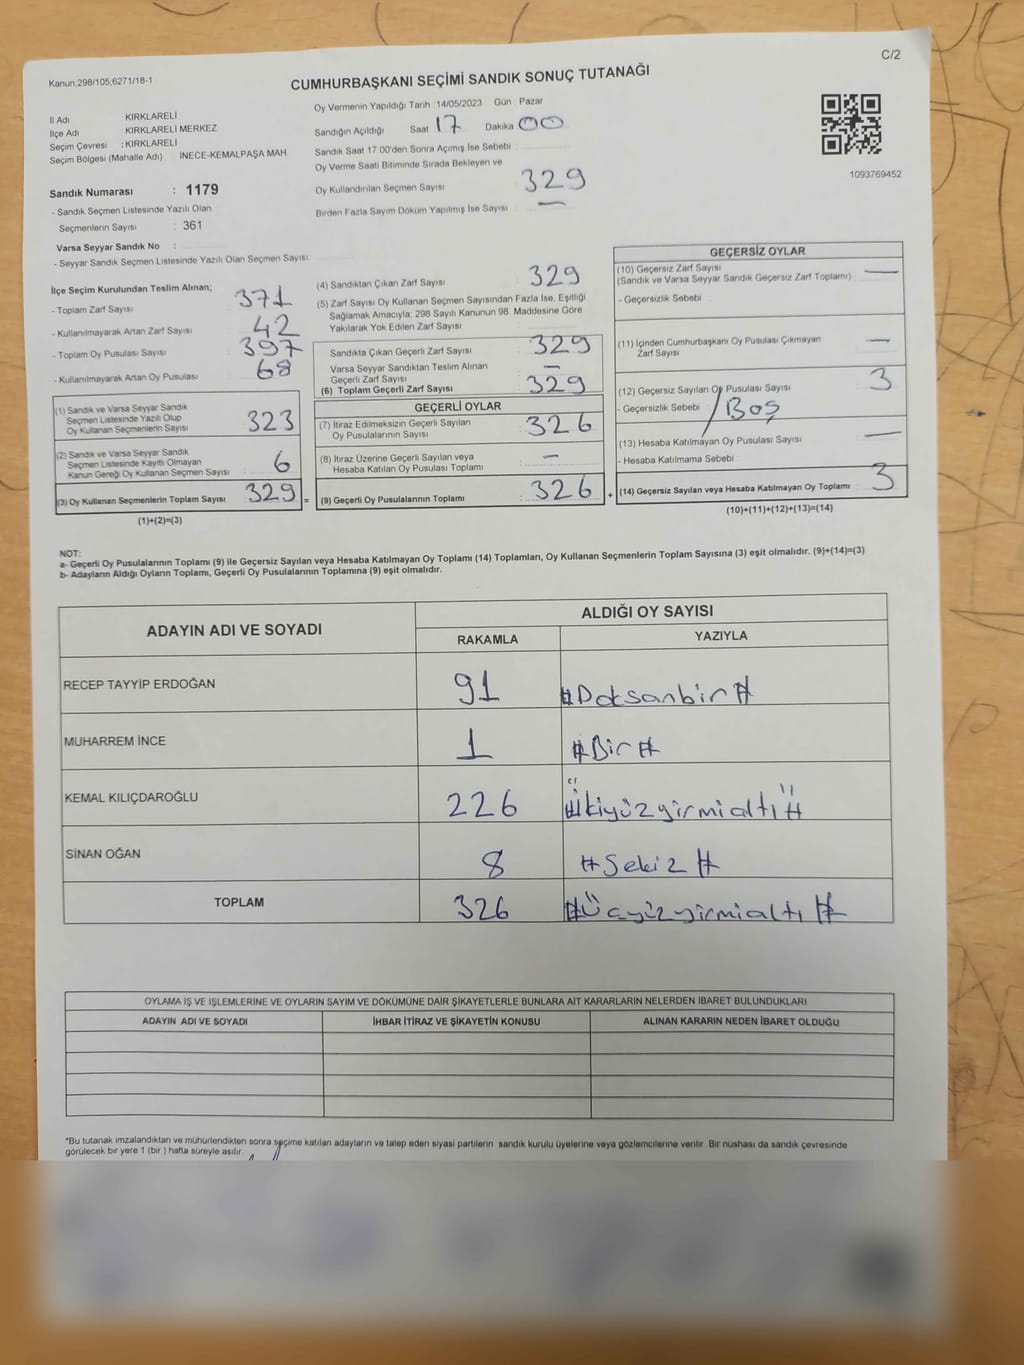 C/2
Kanun,298/105,6271/18-1
CUMHURBAŞKANI SEÇİMİ SANDIK SONUÇ TUTANAĞI
İl Adı KIRKLARELİ
İlçe Adı : KIRKLARELİ MERKEZ
Seçim Çevresi : KIRKLARELİ
Seçim Bölgesi (Mahalle Adı) : İNECE-KEMALPAŞA MAH
Sandık Numarası : 1179
- Sandık Seçmen Listesinde Yazılı Olan
Seçmenlerin Sayısı : 361
Varsa Seyyar Sandık No :
- Seyyar Sandık Seçmen Listesinde Yazılı Olan Seçmen Sayısı:
Oy Vermenin Yapıldığı Tarih : 14/05/2023 Gün : Pazar
Sandığın Açıldığı Saat 17 Dakika 00
Sandık Saat 17:00'den Sonra Açımış İse Sebebi :
Oy Verme Saati Bitiminde Sırada Bekleyen ve
Oy Kullandırılan Seçmen Sayısı 329
Birden Fazla Sayım Döküm Yapılmış İse Sayısı : —
1093769452
İlçe Seçim Kurulundan Teslim Alınan;
- Toplam Zarf Sayısı 371
- Kullanılmayarak Artan Zarf Sayısı 42
- Toplam Oy Pusulası Sayısı 397
- Kullanılmayarak Artan Oy Pusulası 68
(1) Sandık ve Varsa Seyyar Sandık
Seçmen Listesinde Yazılı Olup
Oy Kullanan Seçmenlerin Sayısı 323
(2) Sandık ve Varsa Seyyar Sandık
Seçmen Listesinde Kayıtlı Olmayan
Kanun Gereği Oy Kullanan Seçmen Sayısı 6
(3) Oy Kullanan Seçmenlerin Toplam Sayısı 329 =
(1)+(2)=(3)
(4) Sandıktan Çıkan Zarf Sayısı 329
(5) Zarf Sayısı Oy Kullanan Seçmen Sayısından Fazla İse, Eşitliği
Sağlamak Amacıyla, 298 Sayılı Kanunun 98. Maddesine Göre
Yakılarak Yok Edilen Zarf Sayısı :
Sandıkta Çıkan Geçerli Zarf Sayısı 329
Varsa Seyyar Sandıktan Teslim Alınan
Geçerli Zarf Sayısı —
(6) Toplam Geçerli Zarf Sayısı 329
GEÇERLİ OYLAR
(7) İtiraz Edilmeksizin Geçerli Sayılan
Oy Pusulalarının Sayısı : 326
(8) İtiraz Üzerine Geçerli Sayılan veya
Hesaba Katılan Oy Pusulası Toplamı : —
(9) Geçerli Oy Pusulalarının Toplamı : 326 +
GEÇERSİZ OYLAR
(10) Geçersiz Zarf Sayısı
(Sandık ve Varsa Seyyar Sandık Geçersiz Zarf Toplamı) : —
- Geçersizlik Sebebi :
(11) İçinden Cumhurbaşkanı Oy Pusulası Çıkmayan
Zarf Sayısı : —
(12) Geçersiz Sayılan Oy Pusulası Sayısı : 3
- Geçersizlik Sebebi : / Boş
(13) Hesaba Katılmayan Oy Pusulası Sayısı : —
- Hesaba Katılmama Sebebi :
(14) Geçersiz Sayılan veya Hesaba Katılmayan Oy Toplamı : 3
(10)+(11)+(12)+(13)=(14)
NOT:
a- Geçerli Oy Pusulalarının Toplamı (9) ile Geçersiz Sayılan veya Hesaba Katılmayan Oy Toplamı (14) Toplamları, Oy Kullanan Seçmenlerin Toplam Sayısına (3) eşit olmalıdır. (9)+(14)=(3)
b- Adayların Aldığı Oyların Toplamı, Geçerli Oy Pusulalarının Toplamına (9) eşit olmalıdır.
ADAYIN ADI VE SOYADI ALDIĞI OY SAYISI
RAKAMLA YAZIYLA
RECEP TAYYİP ERDOĞAN 91 #Doksanbir#
MUHARREM İNCE 1 #Bir#
KEMAL KILIÇDAROĞLU 226 #İkiyüzyirmialtı#
SİNAN OĞAN 8 #Sekiz#
TOPLAM 326 #Üçyüzyirmialtı#
OYLAMA İŞ VE İŞLEMLERİNE VE OYLARIN SAYIM VE DÖKÜMÜNE DAİR ŞİKAYETLERLE BUNLARA AİT KARARLARIN NELERDEN İBARET BULUNDUKLARI
ADAYIN ADI VE SOYADI İHBAR İTİRAZ VE ŞİKAYETİN KONUSU ALINAN KARARIN NEDEN İBARET OLDUĞU
*Bu tutanak imzalandıktan ve mühürlendikten sonra seçime katılan adayların ve talep eden siyasi partilerin sandık kurulu üyelerine veya gözlemcilerine verilir. Bir nüshası da sandık çevresinde
görülecek bir yere 1 (bir ) hafta süreyle asılır.